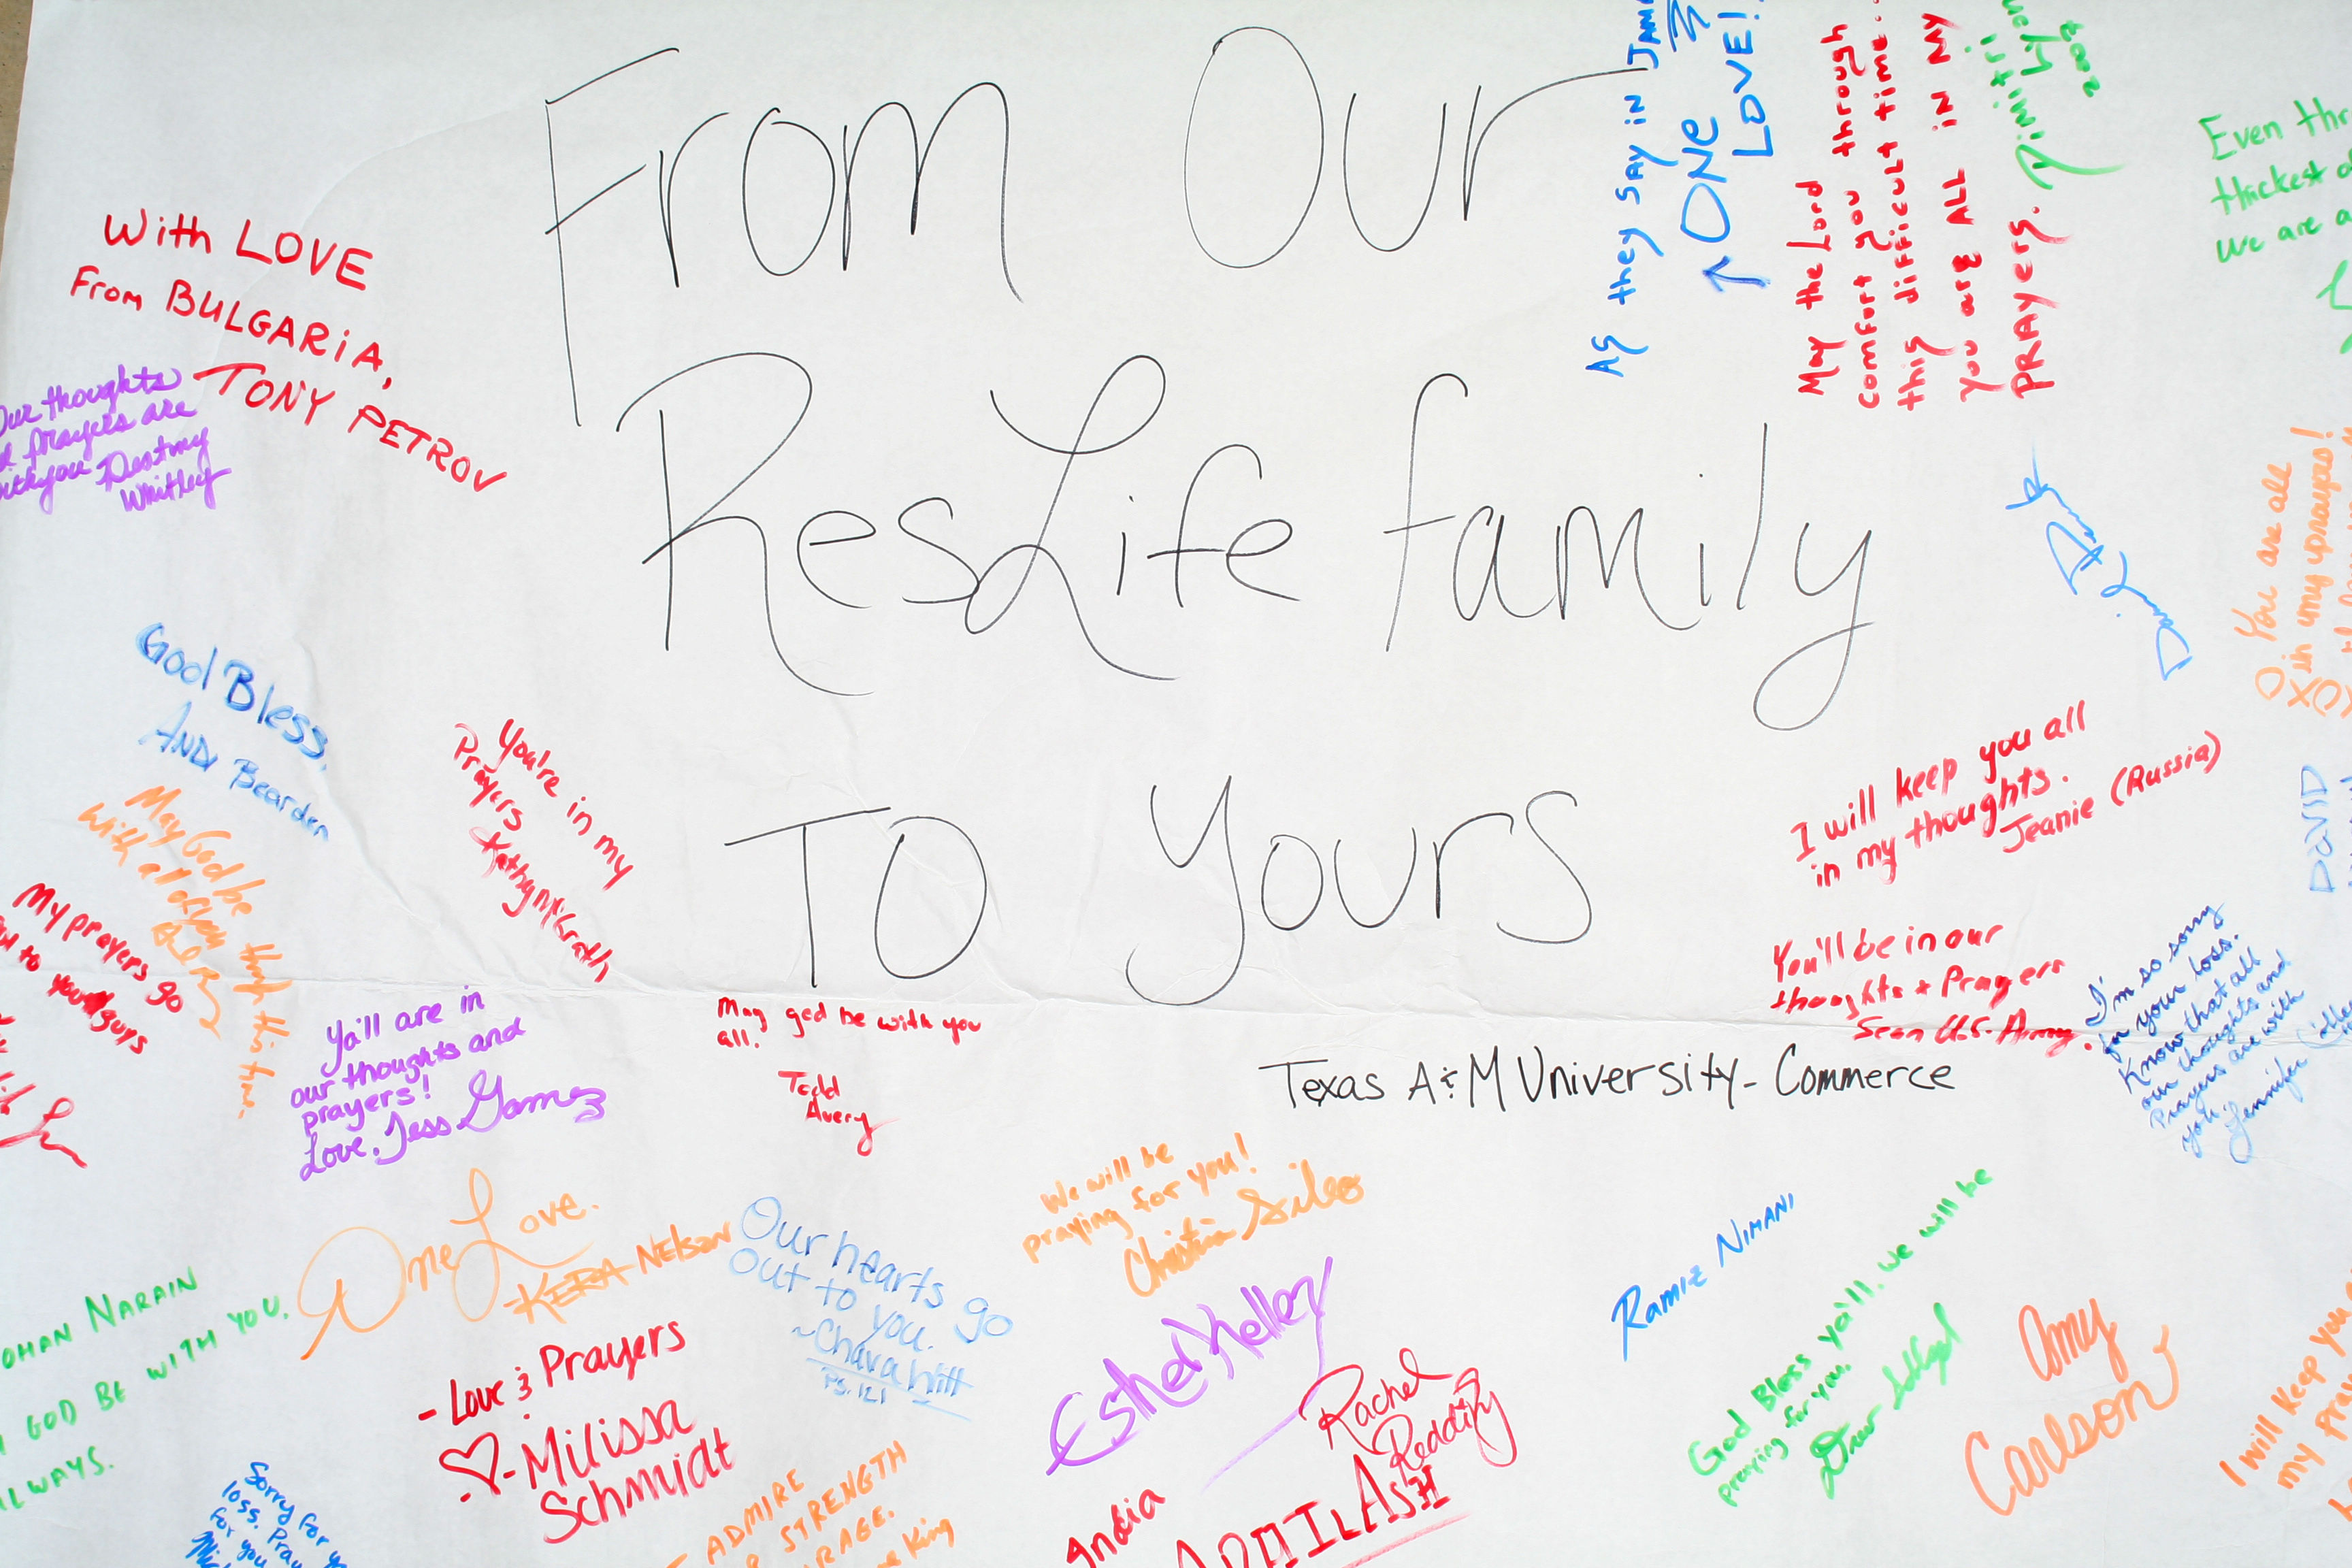 From Our
ResLife family
TO Yours
Texas A&M University- Commerce
With LOVE
From BULGARIA,
TONY PETROV
Our thoughts
prayers are
with you Destiny
Whitley
As they say in
ONE
LOVE!
May the Lord
comfort you through
this difficult time...
You are ALL in MY
PRAYERS.
Even
thickest
we are
You are all
in my prayers!
God Bless,
Andi Bearden
You're in my
Prayers
May God be
with all of you
thru this time.
My prayers go
out to you guys
Ya'll are in
our thoughts and
prayers!
Love, Jess Gomez
May god be with you
all.
Todd
Avery
I will keep you all
in my thoughts.
Jeanie (Russia)
DAVID
You'll be in our
thoughts + Prayers
Sean U.S. Army.
I'm so sorry
for your loss.
Know that all
our thoughts and
Prayers are with
you.
Jennifer
One Love.
KERA NElson
Our hearts go
out to you.
~Chava
Ps. 121
We will be
praying for you!
Christina Giles
Esther Kelley
Rachel
India
RAMIZ NIMANI
God Bless ya'll. we will be
praying for you.
Drew
Amy
Carlson
NARAIN
GOD BE WITH YOU.
ALWAYS.
- Love & Prayers
- Milissa
Schmidt
Sorry for
loss.
for you
ADMIRE
STRENGTH
King
I will keep you
my